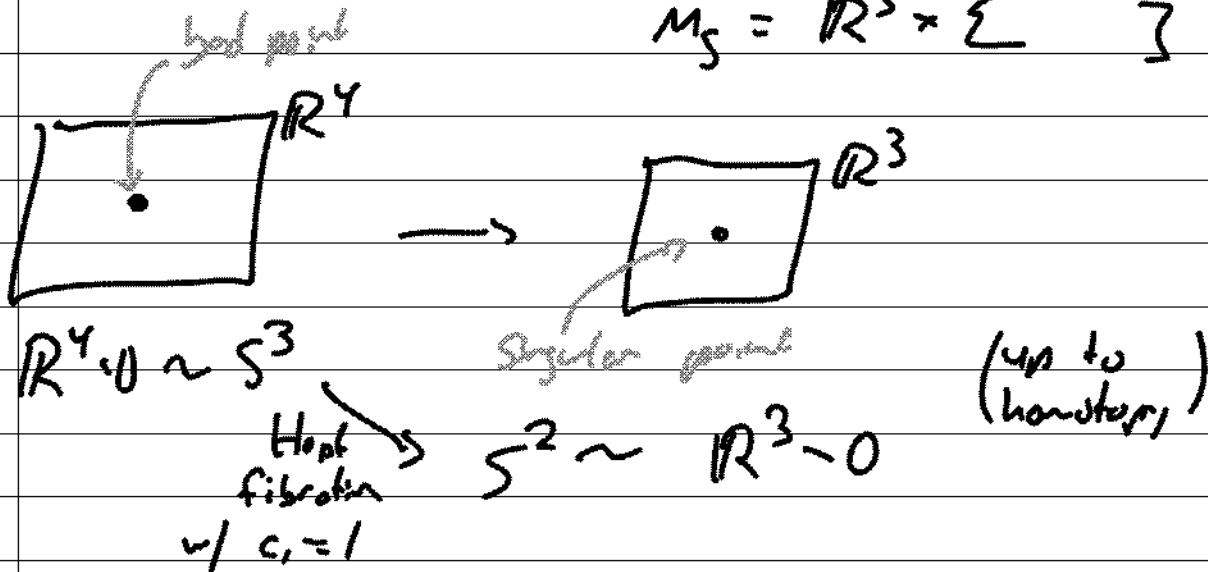 bad point
M_S = ℝ³ × {    }
ℝ⁴
ℝ³
ℝ⁴∖0 ~ S³
Singular point
(up to
homotopy)
Hopf
fibration
w/ c₁ = 1
S² ~ ℝ³∖0